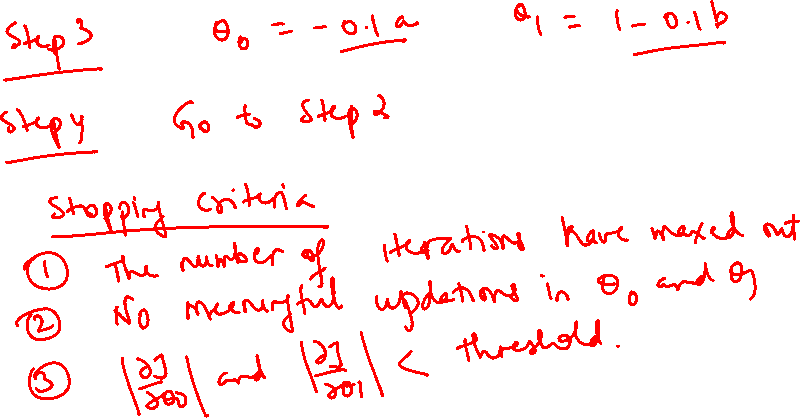 Step 3 θ₀ = - 0.1 a θ₁ = 1 - 0.1 b
Step 4 Go to Step 2
Stopping Criteria
① The number of iterations have maxed out
② No meeningful updations in θ₀ and θ₁
③ |∂J/∂θ₀| and |∂J/∂θ₁| < threshold.